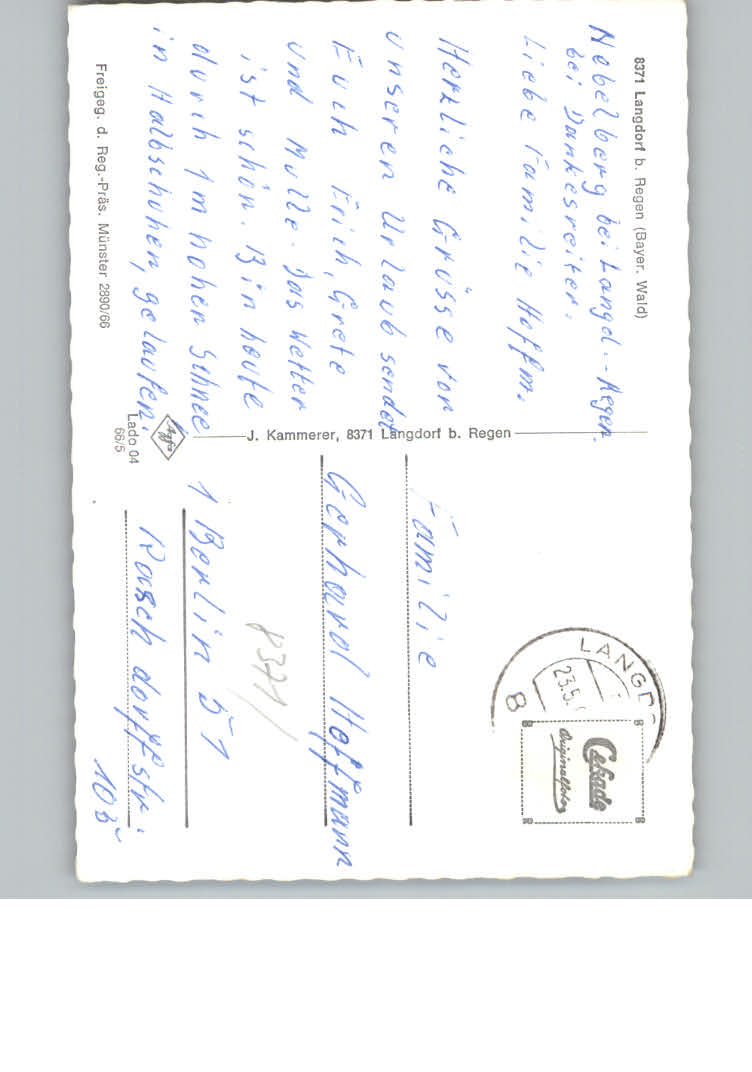 8371 Langdorf b. Regen (Bayer. Wald)
Nebelberg bei Langd.-Regen.
bei Dankesreiter.
Liebe Familie Hoffm.
Herzliche Grüsse von
unseren Urlaub sendet
Euch Erich, Grete
und Mulle. Das Wetter
ist schön. Bin heute
durch 1 m hohen Schnee
in Halbschuhen, gelaufen.
Freigeg. d. Reg.-Präs. Münster 2890/66
J. Kammerer, 8371 Langdorf b. Regen
Agfa
Lado 04
66/5
LANGD
23.5.
8
Cekade
Originalfoto
Familie
Gerhard Hoffmann
8371
1 Berlin 51
Raschdorffstr.